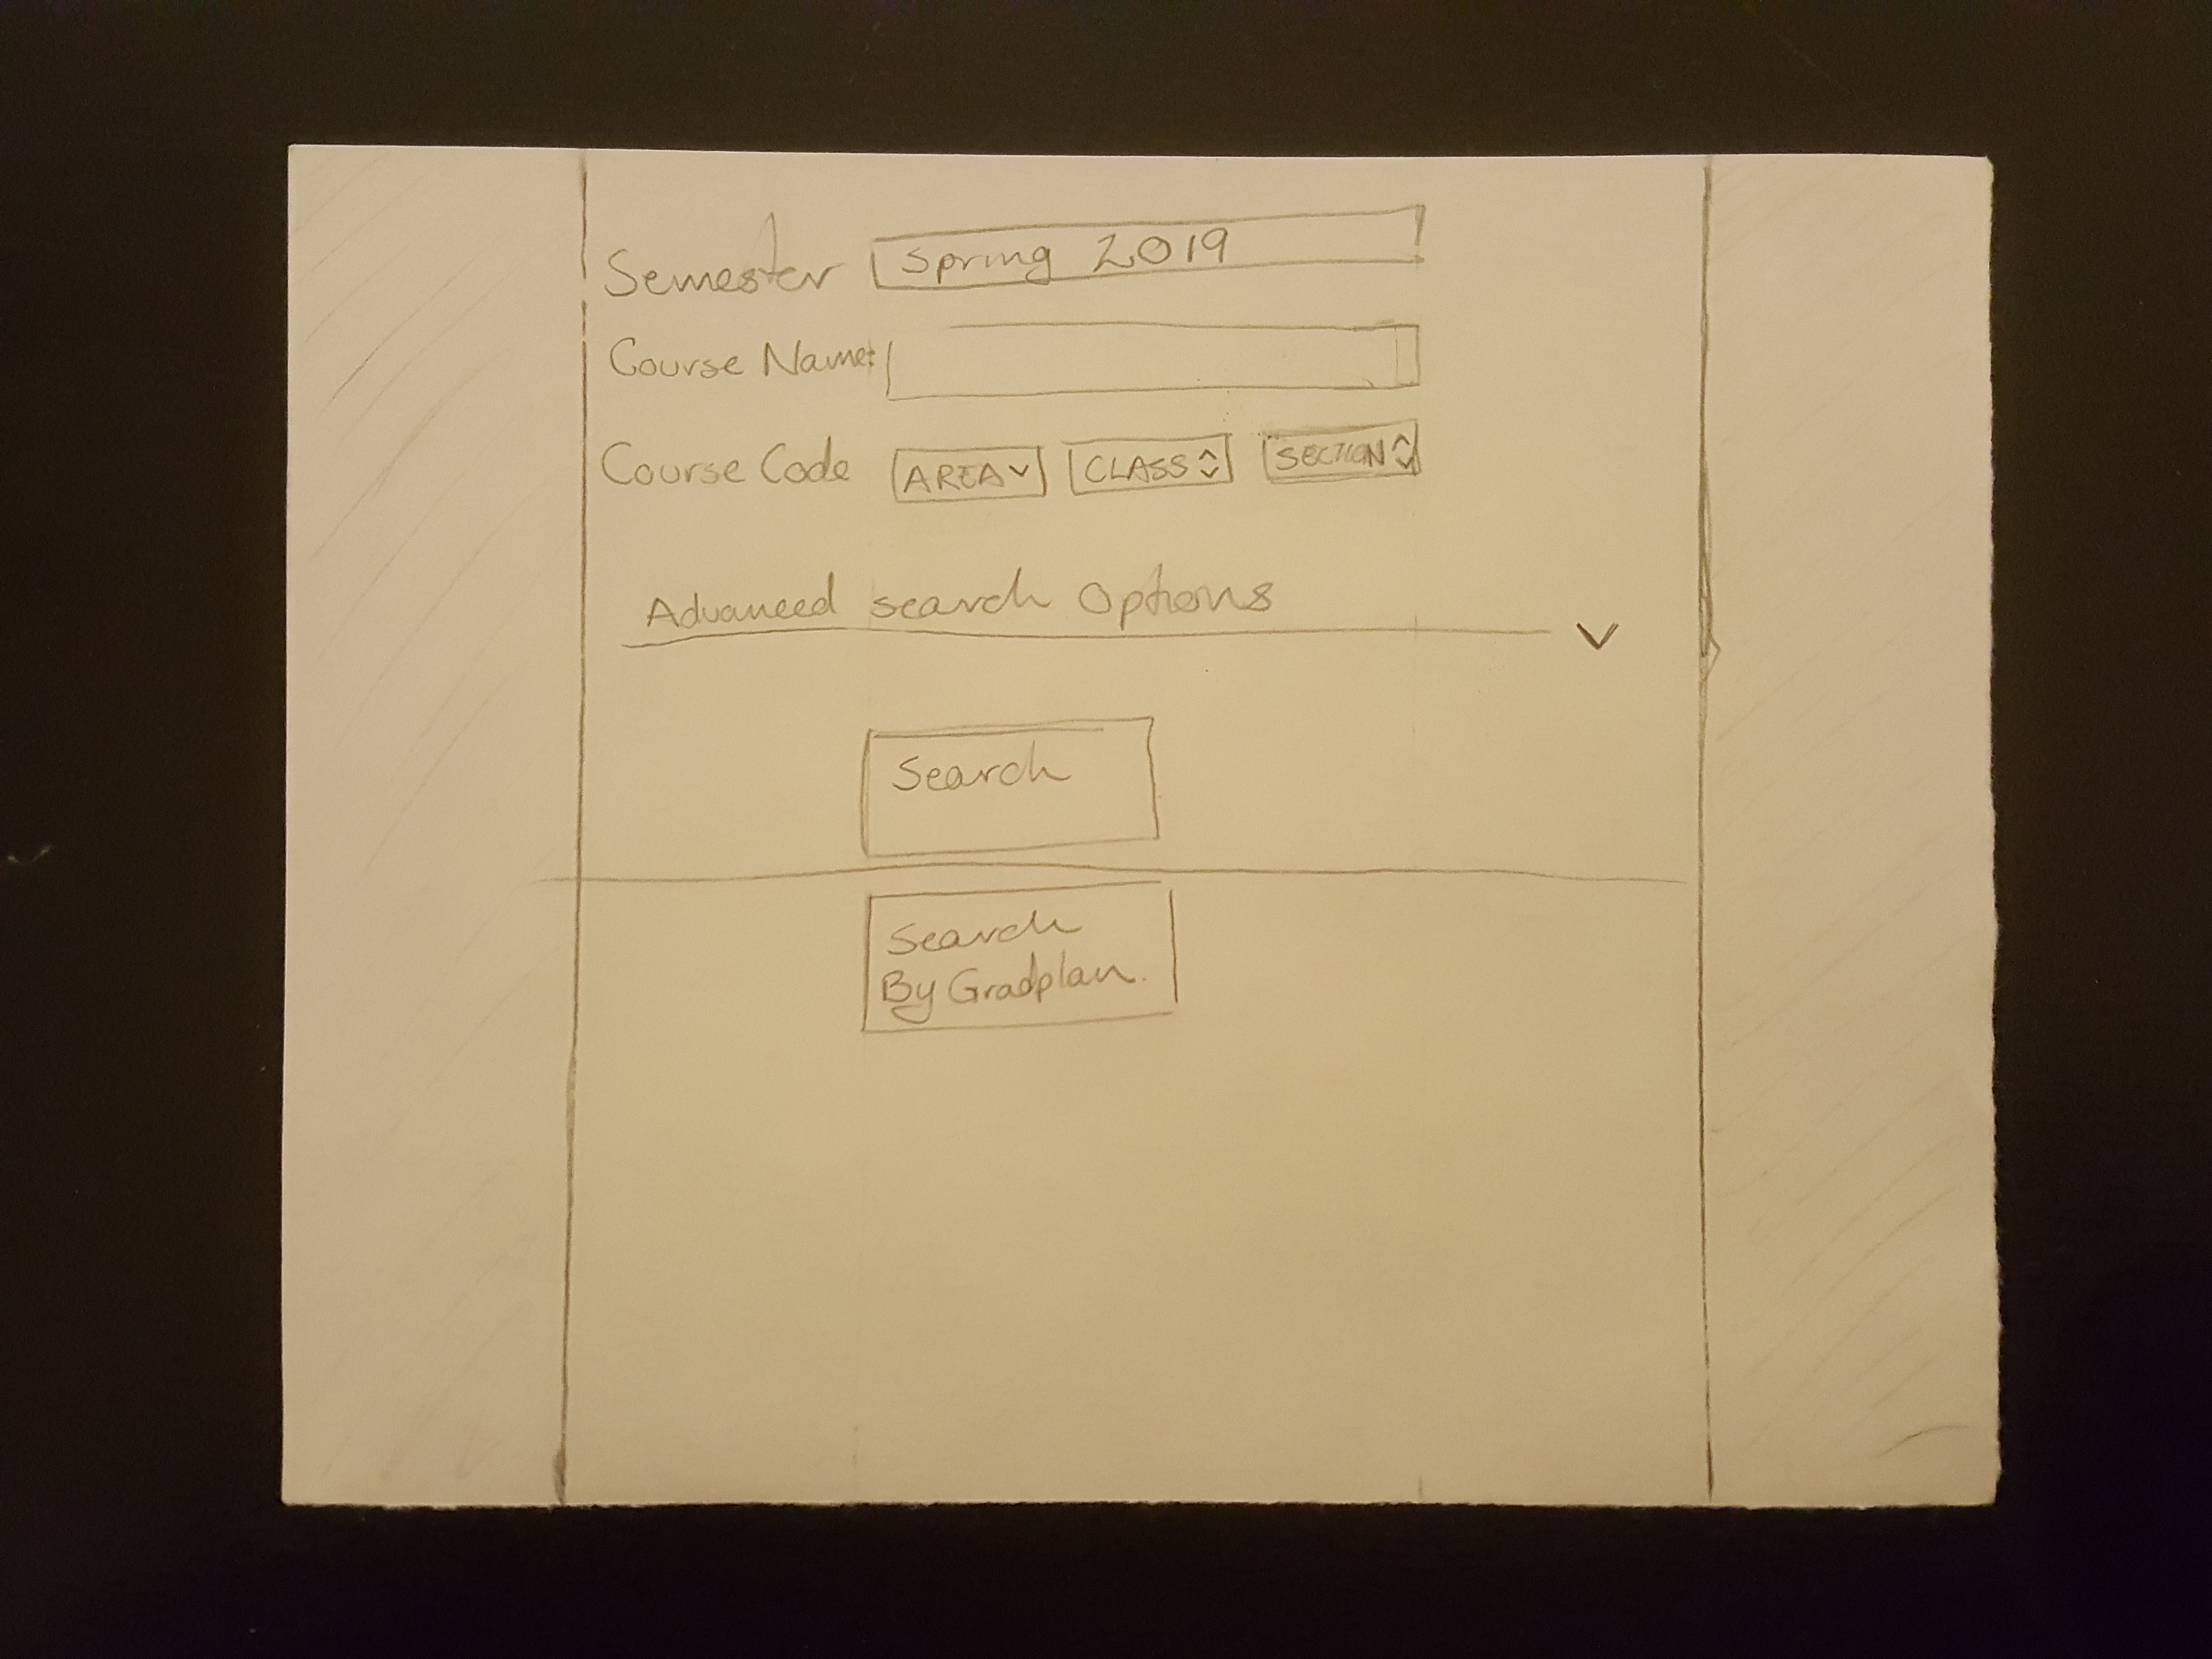 Semester Spring 2019
Course Name:
Course Code AREA CLASS SECTION
Advanced search Options
Search
Search
By Gradplan.